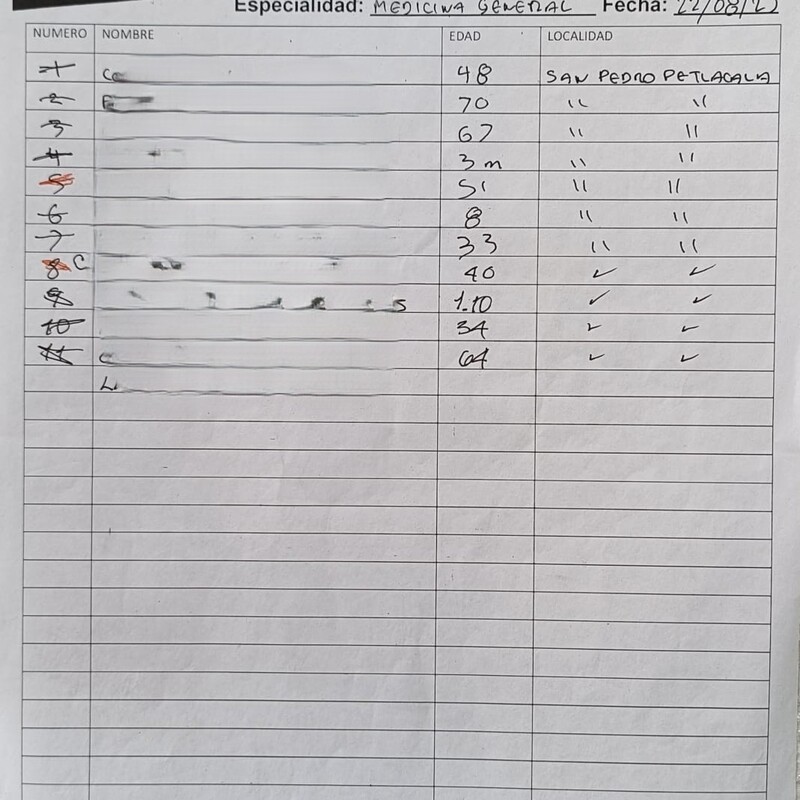 Especialidad: MEDICINA GENERAL Fecha: 22/08/22
NUMERO NOMBRE EDAD LOCALIDAD
1 48 SAN PEDRO PETLACALA
2 70 " "
3 67 " "
4 3 m " "
5 51 " "
6 8 " "
7 33 " "
8 C 40 ✓ ✓
9 1.10 ✓ ✓
10 34 ✓ ✓
11 64 ✓ ✓